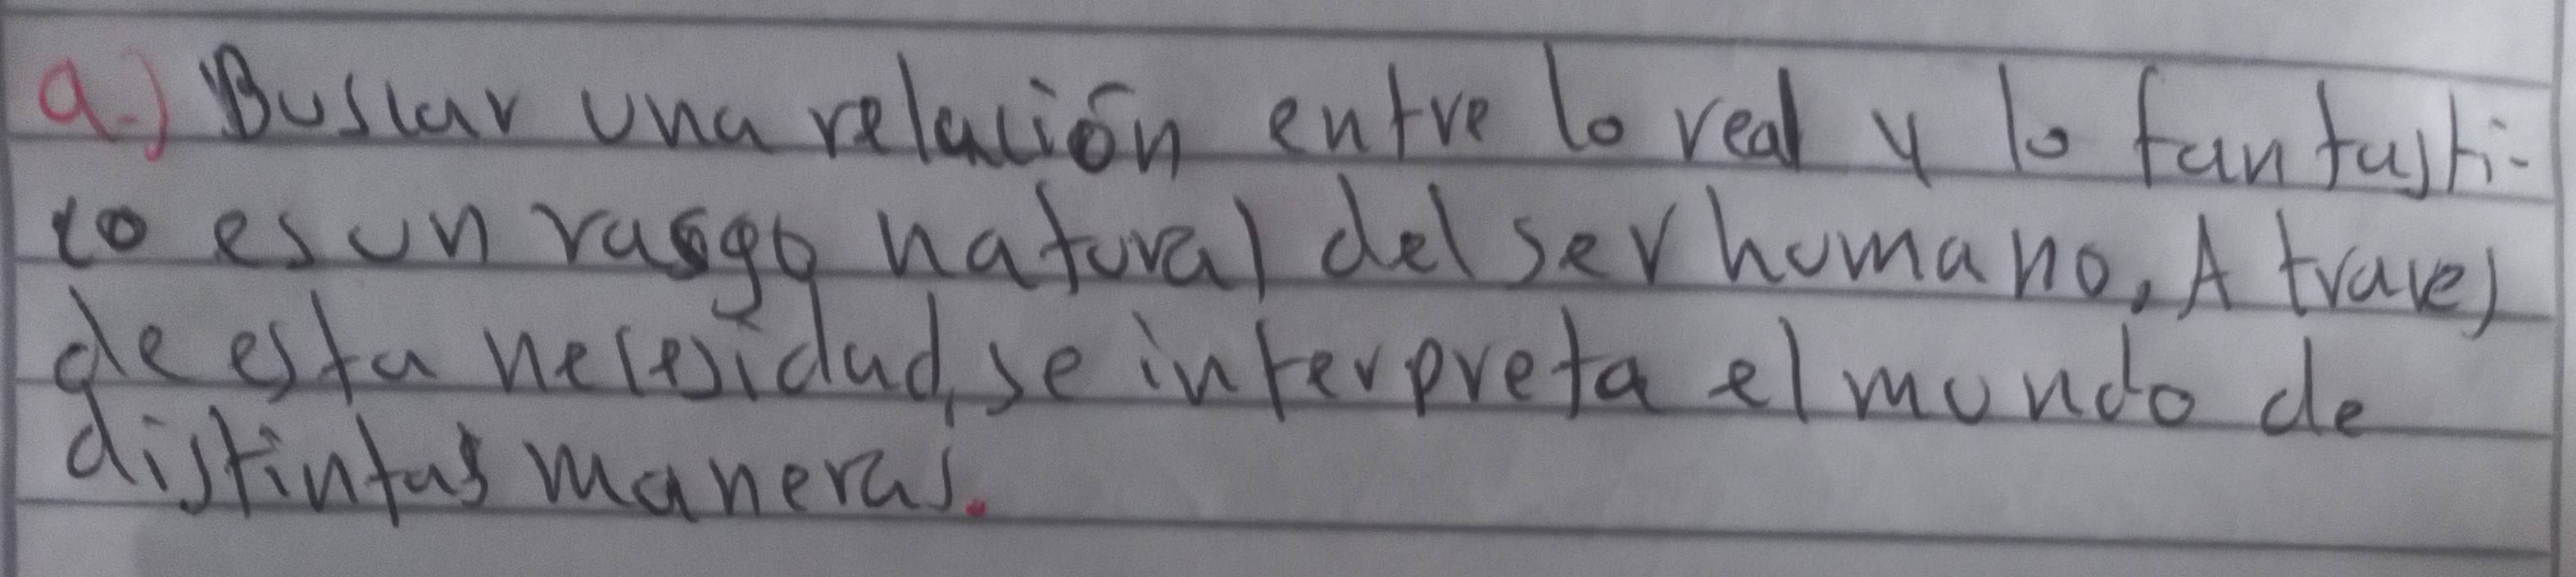 a.) Buscar una relación entre lo real y lo fantasti-
co es un rasgo natural del ser humano, A traves
de esta necesidad, se interpreta el mundo de
distintas maneras.